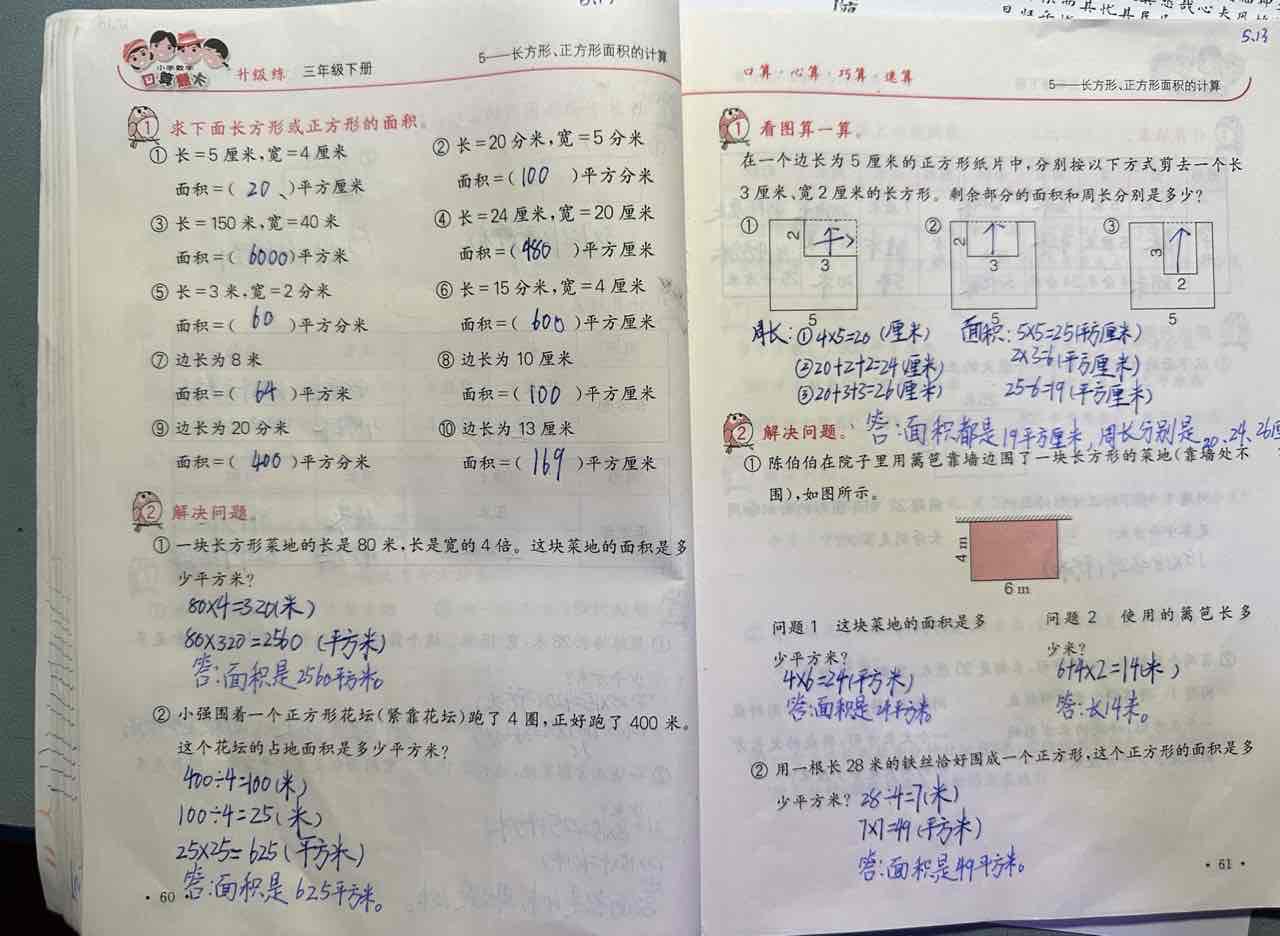 5.13
小学数学
口算题卡 升级练 三年级下册
5——长方形、正方形面积的计算
1 求下面长方形或正方形的面积。
① 长=5厘米,宽=4厘米
面积=( 20 )平方厘米
② 长=20分米,宽=5分米
面积=( 100 )平方分米
③ 长=150米,宽=40米
面积=( 6000 )平方米
④ 长=24厘米,宽=20厘米
面积=( 480 )平方厘米
⑤ 长=3米,宽=2分米
面积=( 60 )平方分米
⑥ 长=15分米,宽=4厘米
面积=( 600 )平方厘米
⑦ 边长为8米
面积=( 64 )平方米
⑧ 边长为10厘米
面积=( 100 )平方厘米
⑨ 边长为20分米
面积=( 400 )平方分米
⑩ 边长为13厘米
面积=( 169 )平方厘米
2 解决问题。
① 一块长方形菜地的长是80米,长是宽的4倍。这块菜地的面积是多
少平方米?
80×4=320(米)
80×320=2560 (平方米)
答:面积是2560平方米。
② 小强围着一个正方形花坛(紧靠花坛)跑了4圈,正好跑了400米。
这个花坛的占地面积是多少平方米?
400÷4=100(米)
100÷4=25(米)
25×25=625(平方米)
答:面积是625平方米。
· 60 ·
5.13
口算·心算·巧算·速算
5——长方形、正方形面积的计算
1 看图算一算。
在一个边长为5厘米的正方形纸片中,分别按以下方式剪去一个长
3厘米、宽2厘米的长方形。剩余部分的面积和周长分别是多少?
① 2 3 5
② 2 3 5
③ 3 2 5
周长:①4×5=20 (厘米) 面积:5×5=25(平方厘米)
②20+2+2=24(厘米) 2×3=6(平方厘米)
③20+3+3=26(厘米) 25-6=19(平方厘米)
2 解决问题。 答:面积都是19平方厘米,周长分别是20、24、26厘
① 陈伯伯在院子里用篱笆靠墙边围了一块长方形的菜地(靠墙处不
围),如图所示。
4 m
6 m
问题1 这块菜地的面积是多
少平方米?
4×6=24(平方米)
答:面积是24平方米。
问题2 使用的篱笆长多
少米?
6+4×2=14(米)
答:长14米。
② 用一根长28米的铁丝恰好围成一个正方形,这个正方形的面积是多
少平方米? 28÷4=7(米)
7×7=49(平方米)
答:面积是49平方米。
· 61 ·